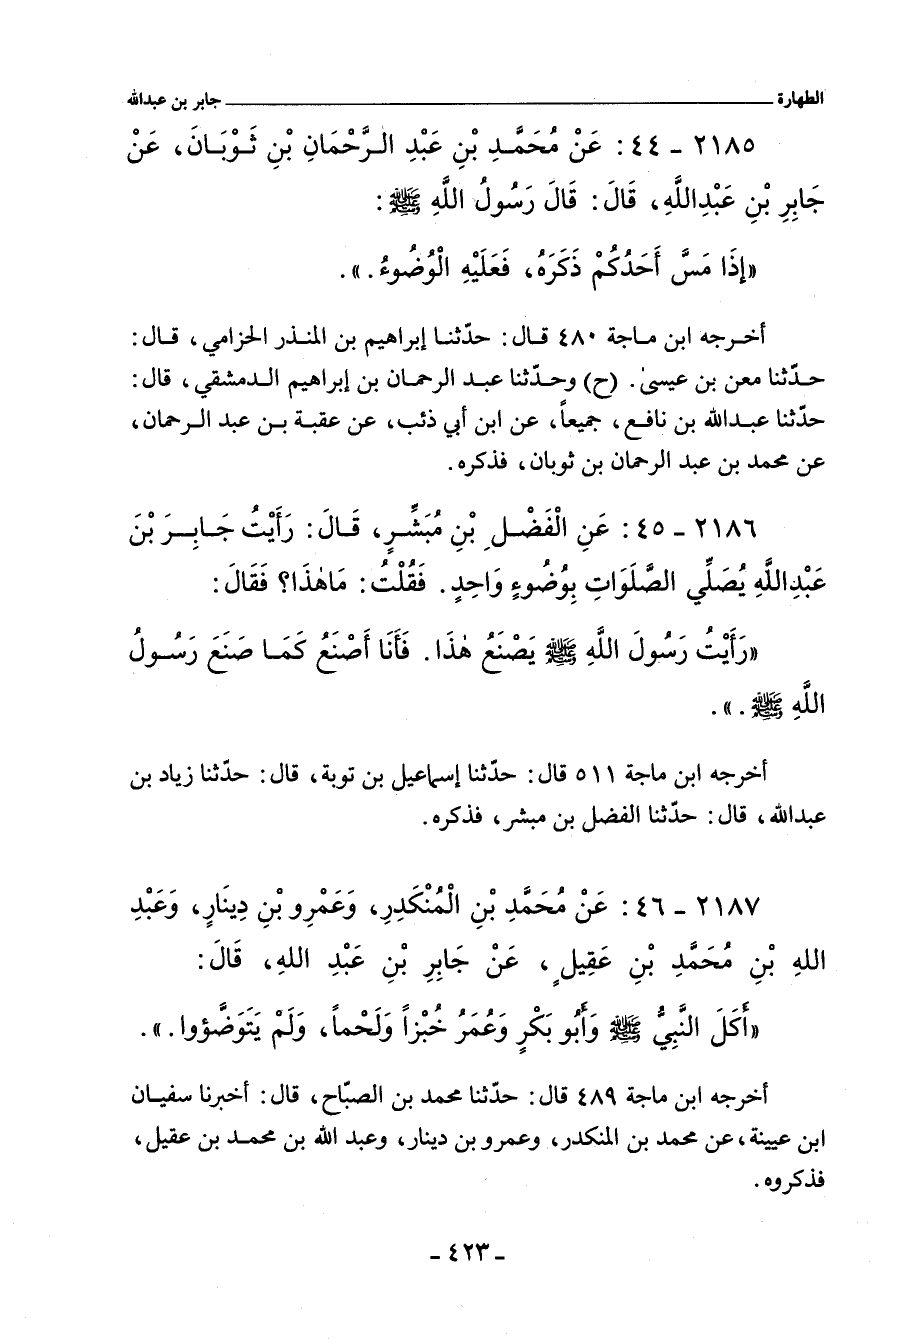 الطهارة ــــــــــ جابر بن عبدالله
٢١٨٥ ـ ٤٤ : عَنْ مُحَمَّدِ بْنِ عَبْدِ الرَّحْمَانِ بْنِ ثَوْبَانَ، عَنْ
جَابِرِ بْنِ عَبْدِاللَّهِ، قَالَ: قَالَ رَسُولُ اللَّهِ ﷺ :
«إِذَا مَسَّ أَحَدُكُمْ ذَكَرَهُ، فَعَلَيْهِ الْوُضُوءُ.».
أخرجه ابن ماجة ٤٨٠ قال: حدّثنا إبراهيم بن المنذر الحزامي، قال:
حدّثنا معن بن عيسىٰ. (ح) وحدّثنا عبد الرحمان بن إبراهيم الدمشقي، قال:
حدّثنا عبدالله بن نافع، جميعاً، عن ابن أبي ذئب، عن عقبة بن عبد الرحمان،
عن محمد بن عبد الرحمان بن ثوبان، فذكره.
٢١٨٦ ـ ٤٥ : عَنِ الْفَضْلِ بْنِ مُبَشِّرٍ، قَالَ: رَأَيْتُ جَابِرَ بْنَ
عَبْدِاللَّهِ يُصَلِّي الصَّلَوَاتِ بِوُضُوءٍ وَاحِدٍ. فَقُلْتُ: مَاهٰذَا؟ فَقَالَ:
«رَأَيْتُ رَسُولَ اللَّهِ ﷺ يَصْنَعُ هٰذَا. فَأَنَا أَصْنَعُ كَمَا صَنَعَ رَسُولُ
اللَّهِ ﷺ.».
أخرجه ابن ماجة ٥١١ قال: حدّثنا إسماعيل بن توبة، قال: حدّثنا زياد بن
عبدالله، قال: حدّثنا الفضل بن مبشر، فذكره.
٢١٨٧ ـ ٤٦ : عَنْ مُحَمَّدِ بْنِ الْمُنْكَدِرِ، وَعَمْرِو بْنِ دِينَارٍ، وَعَبْدِ
اللهِ بْنِ مُحَمَّدِ بْنِ عَقِيلٍ، عَنْ جَابِرِ بْنِ عَبْدِ اللهِ، قَالَ:
«أَكَلَ النَّبِيُّ ﷺ وَأَبُو بَكْرٍ وَعُمَرُ خُبْزاً وَلَحْماً، وَلَمْ يَتَوَضَّؤوا.».
أخرجه ابن ماجة ٤٨٩ قال: حدّثنا محمد بن الصبّاح، قال: أخبرنا سفيان
ابن عيينة، عن محمد بن المنكدر، وعمرو بن دينار، وعبد الله بن محمد بن عقيل،
فذكروه.
ـ ٤٢٣ ـ